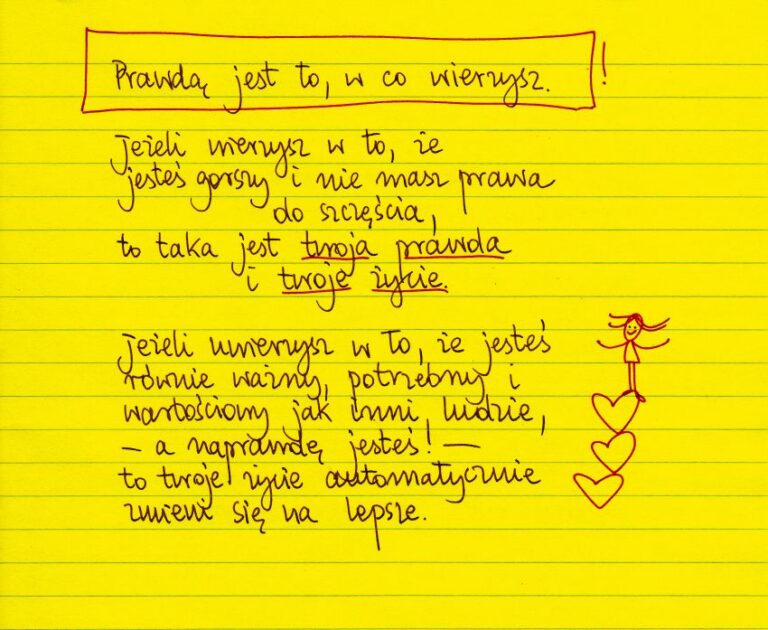 Prawdą jest to, w co wierzysz.!
Jeżeli wierzysz w to, że
jesteś gorszy i nie masz prawa
do szczęścia,
to taka jest twoja prawda
i twoje życie.
Jeżeli uwierzysz w to, że jesteś
równie ważny, potrzebny i
wartościowy jak inni ludzie,
– a naprawdę jesteś! –
to twoje życie automatycznie
zmieni się na lepsze.